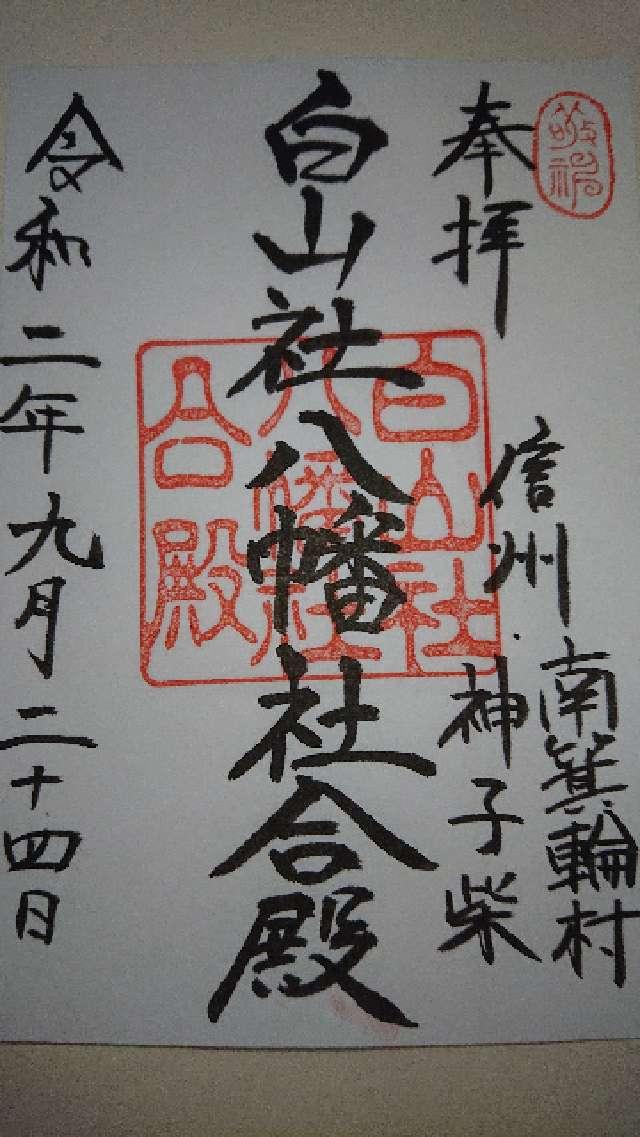 奉拝
信州
南箕輪村
神子柴
白山社八幡社合殿
白山社
八幡社
合殿
令和二年九月二十四日